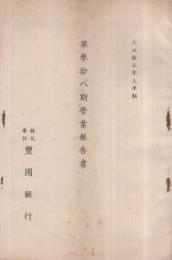 大正拾五年上半期
第参拾八期営業報告書
株式会社豊國銀行